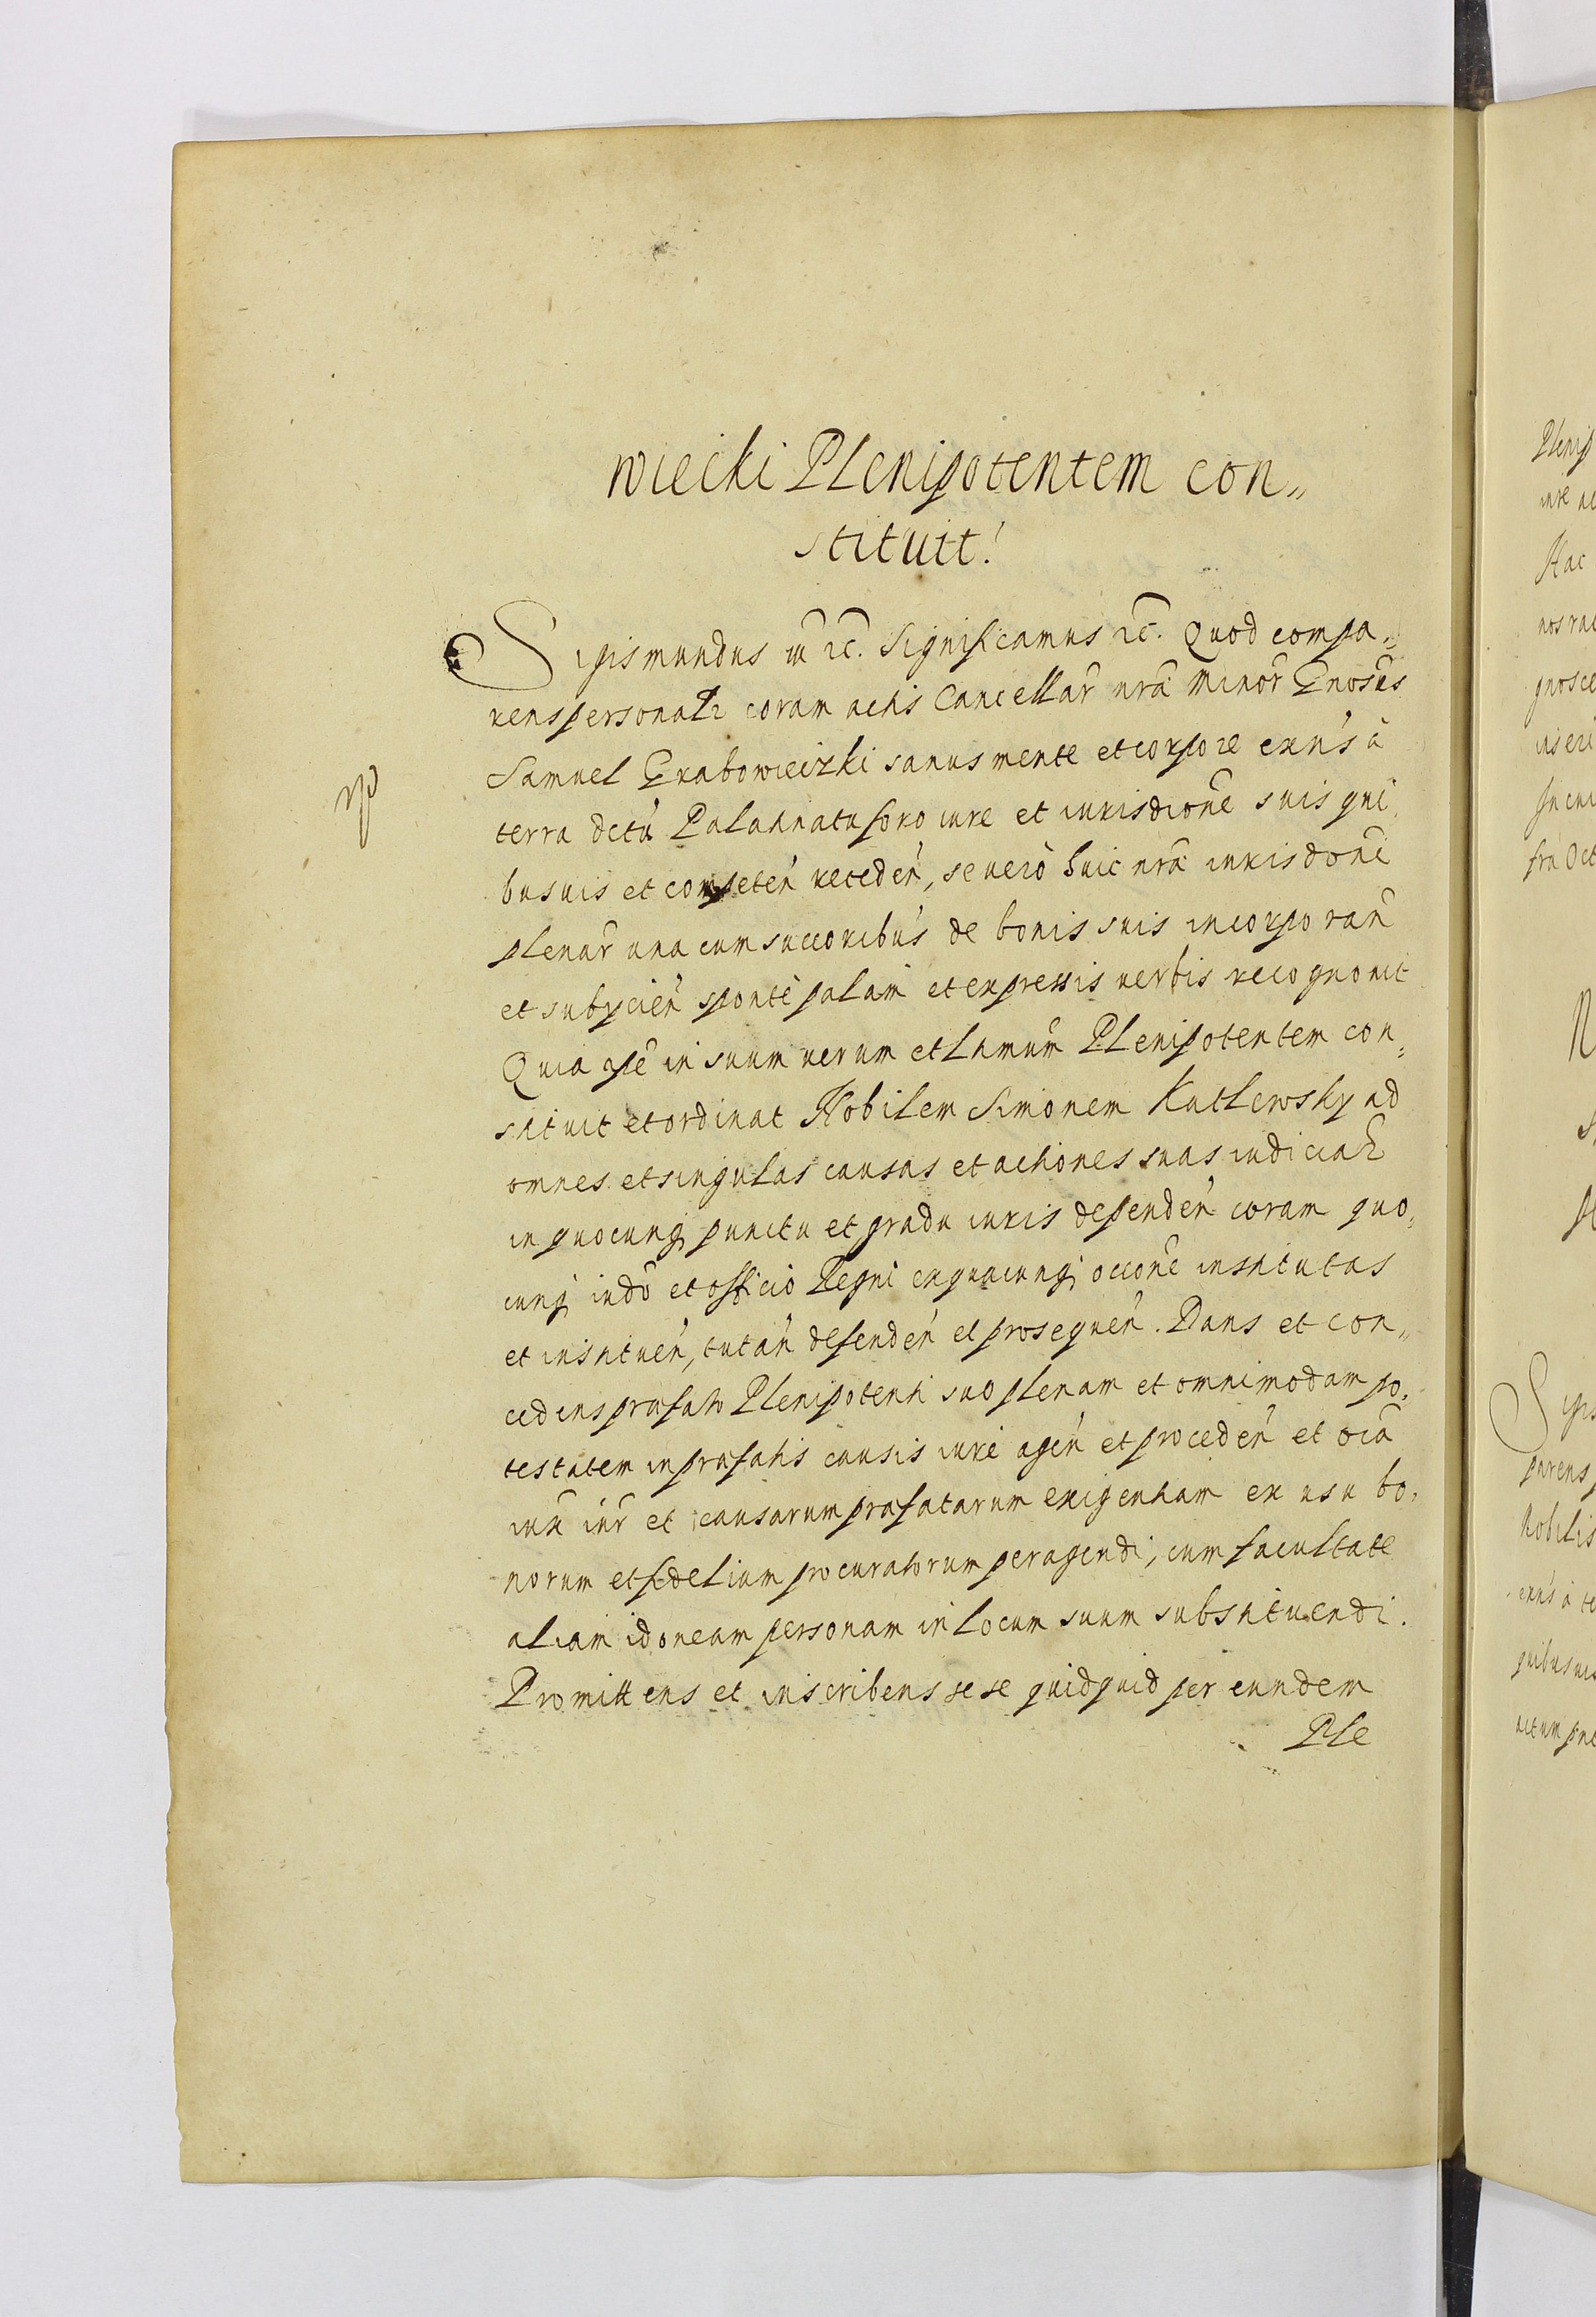 wiecki Plenipotentem con„
stituit.
Sigismundus III etc. Significamus etc. Quod compa„
rens personalr coram actis Cancellar nrae Minor Gnosus
Samuel Grabowieczki sanus mente et corpore exns à
terra dctu Palatinatu foro iure et iurisdione suis qui„
busuis et competen receden, se vero huic nrae iurisdoni
plenar una cum succoribus de bonis suis incorporan
et subycien sponte palam et expressis verbis recognovit
Quia ipse in suum verum et Ltimum Plenipotentem con„
stituit et ordinat Nobilem Simonem Kutlewsky ad
omnes et singulas causas et actiones suas iudicial
in quocunq punctu et gradu iuris dependen coram quo„
cunq iudo et officio Regni ex quacunq occone institutas
et instituen, tutan defenden et prosequen. Dans et con„
cedens praefato Plenipotenti suo plenam et omnimodam po„
testatem in praefatis causis iure agen et proceden et oia
iux iur et causarum praefatarum exigentiam ex usu bo„
norum et fidelium procuratorum peragendi, cum facultate
aliam idoneam personam in locum suum substituendi.
Promittens et inscribens sese quidquid per eundem
Ple